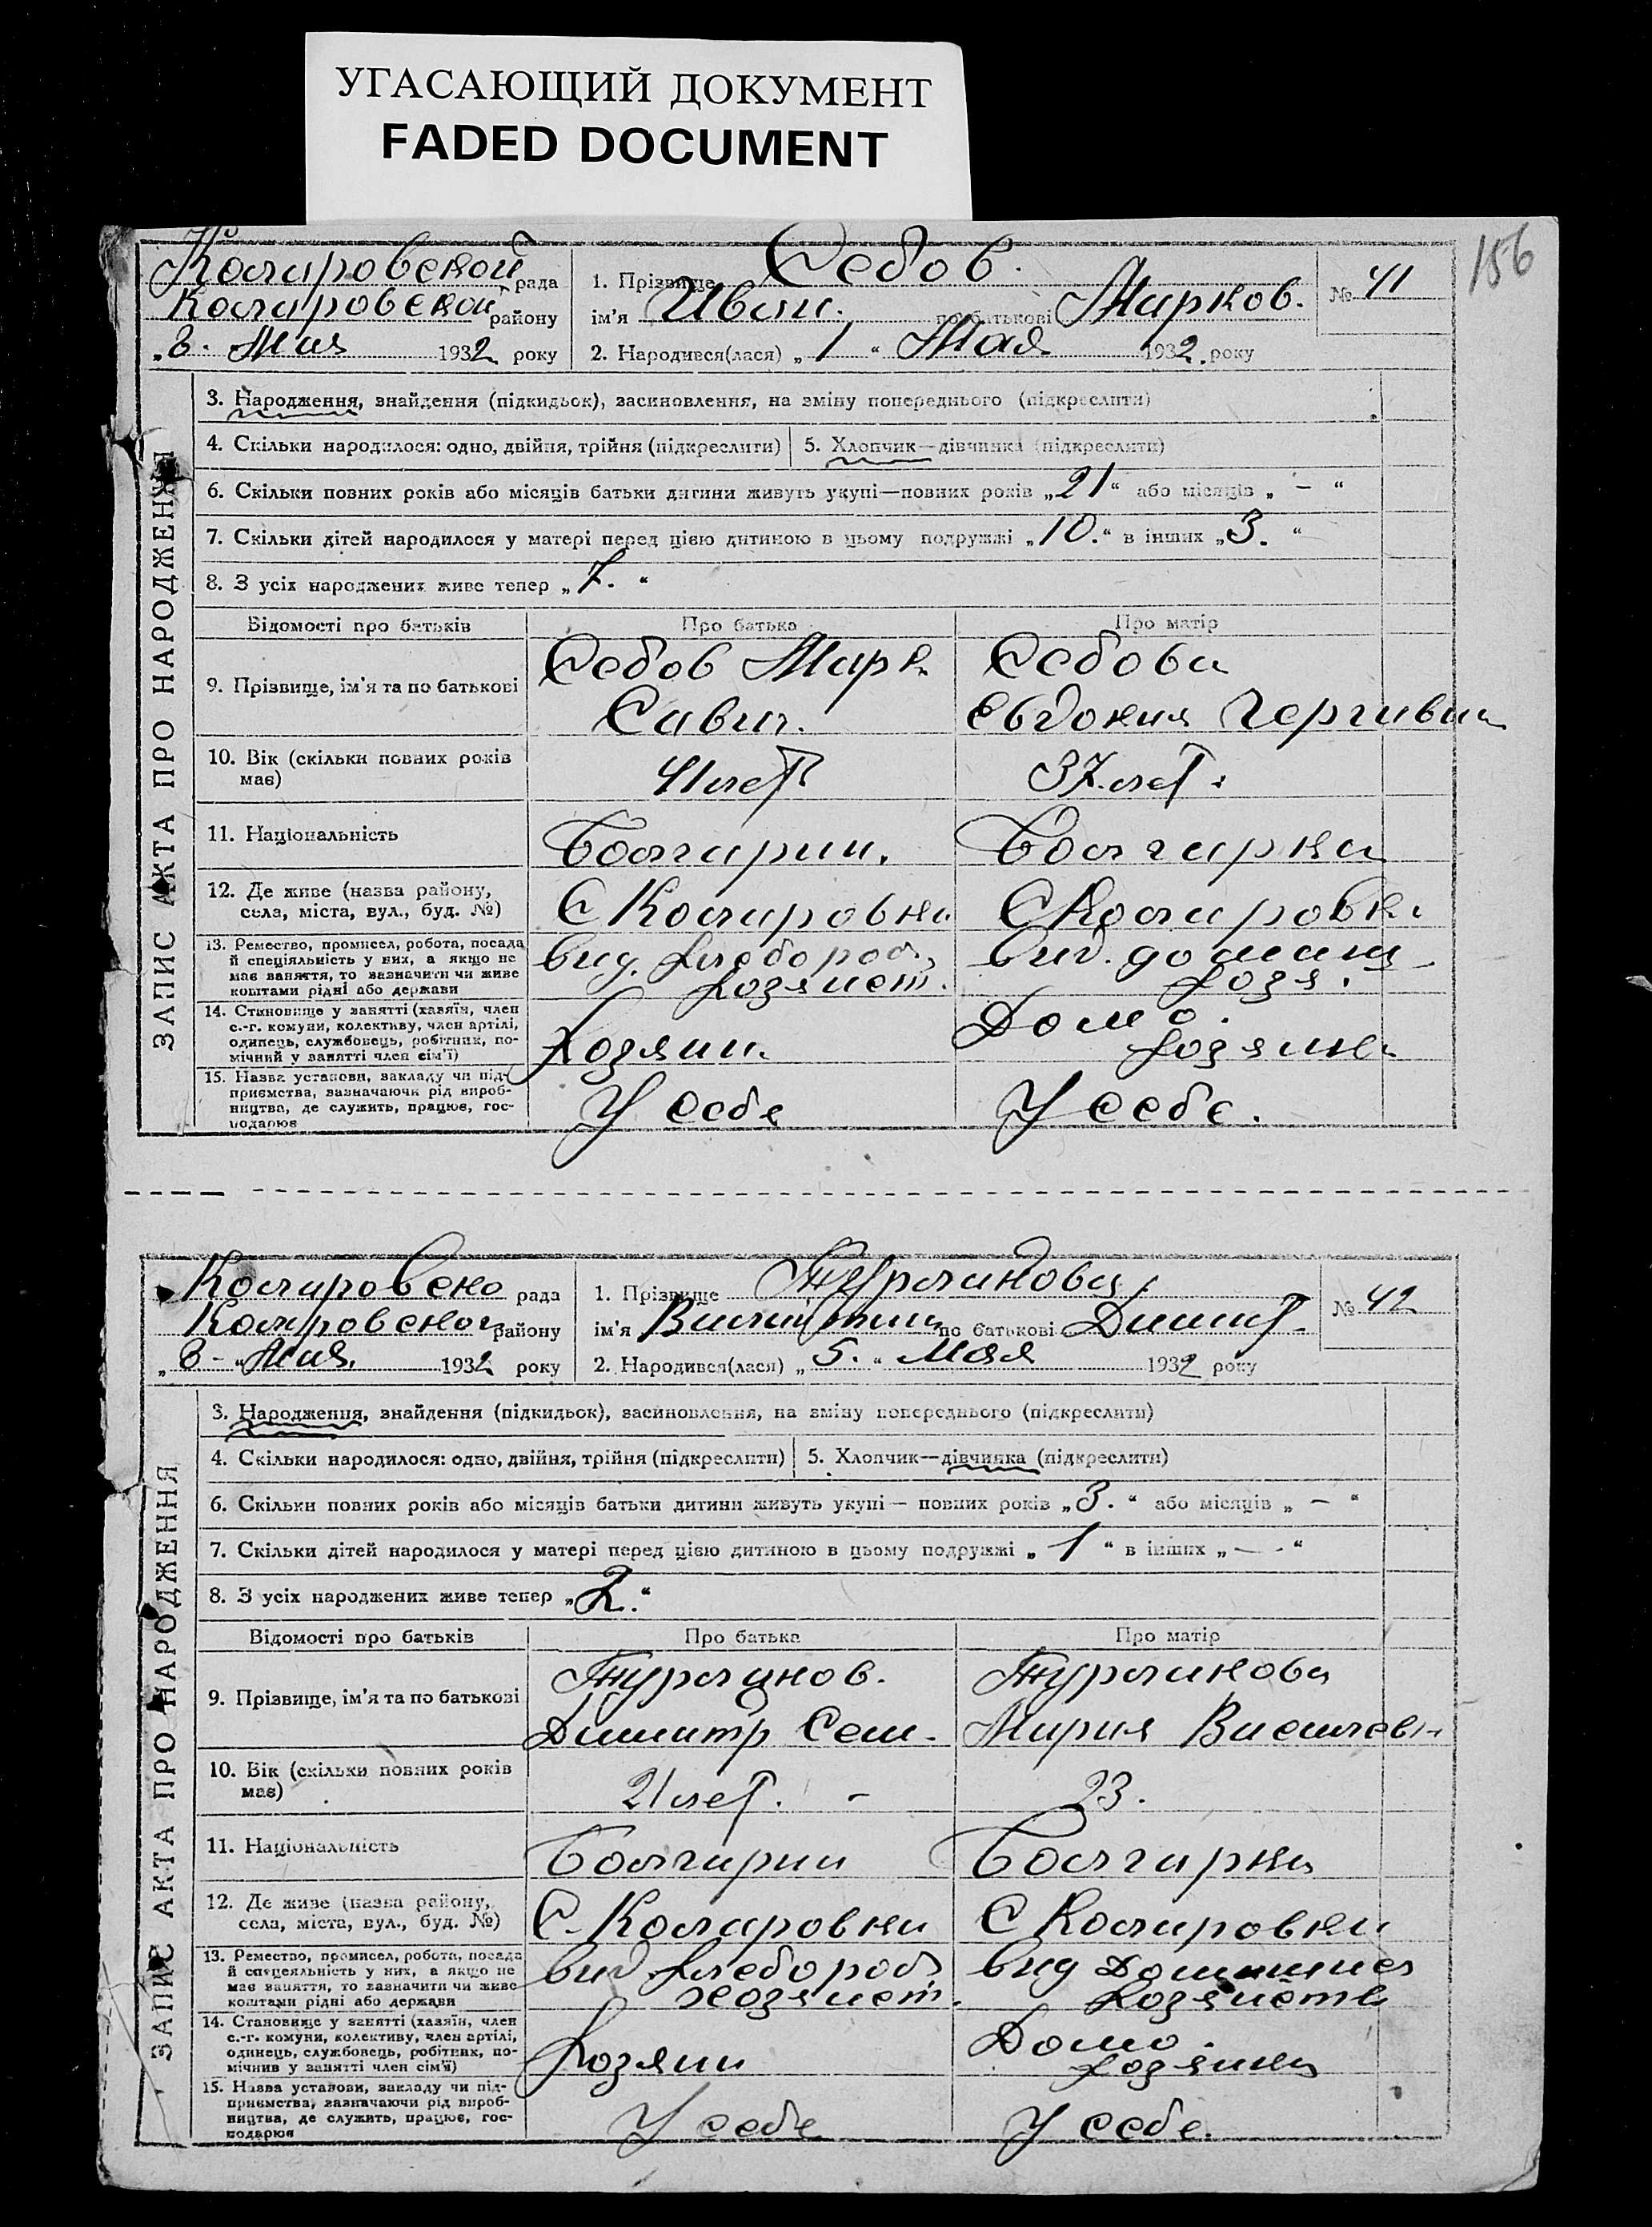 УГАСАЮЩИЙ ДОКУМЕНТ
FADED DOCUMENT
156
Коларовской рада
Коларовской району
„8. Мая 1932 року
1. Прізвище Себов.
ім'я Иван. по батькові Марков.
2. Народився(лася) „1“ Мая 1932. року
№ 41
ЗАПИС АКТА ПРО НАРОДЖЕННЯ
3. Народження, знайдення (підкидьок), засиновлення, на зміну попереднього (підкреслити)
4. Скільки народилося: одно, двійня, трійня (підкреслити) 5. Хлопчик—дівчинка (підкреслити)
6. Скільки повних років або місяців батьки дитини живуть укупі—повних років „21“ або місяців „ – “
7. Скільки дітей народилося у матері перед цією дитиною в цьому подружжі „10.“ в інших „3. “
8. З усіх народжених живе тепер „7. “
Відомості про батьків Про батька Про матір
9. Прізвище, ім'я та по батькові
Себов Марк Савич.
Себова Евдокия
10. Вік (скільки повних років має)
41 лет
37 лет.
11. Національність
Болгарин.
Болгарка
12. Де живе (назва району, села, міста, вул., буд. №)
С Коларовка
С Коларовка
13. Ремество, промисел, робота, посада й спеціяльність у них, а якщо не має заняття, то зазначити чи живе коштами рідні або держави
вид. хлебороб. хозяист.
вид. домаш хозя.
14. Становище у занятті (хазяїн, член с.-г. комуни, колективу, член артілі, одинець, службовець, робітник, помічний у занятті член сім'ї)
Хозяин.
Домо. хозяика
15. Назва установи, закладу чи підприємства, зазначаючи рід виробництва, де служить, працює, господарює
У себя
У себе.
Коларовско рада
Коларовской району
„8 – “ Мая. 1932 року
1. Прізвище Турланова
ім'я по батькові Димит.
2. Народився(лася) „5.“ Мая 1932 року
№ 42
ЗАПИС АКТА ПРО НАРОДЖЕННЯ
3. Народження, знайдення (підкидьок), засиновлення, на зміну попереднього (підкреслити)
4. Скільки народилося: одно, двійня, трійня (підкреслити) 5. Хлопчик—дівчинка (підкреслити)
6. Скільки повних років або місяців батьки дитини живуть укупі — повних років „3. “ або місяців „ – “
7. Скільки дітей народилося у матері перед цією дитиною в цьому подружжі „ 1 “ в інших „ — “
8. З усіх народжених живе тепер „2.“
Відомості про батьків Про батька Про матір
9. Прізвище, ім'я та по батькові
Турланов. Димитр Сем.
Турланова Мария
10. Вік (скільки повних років має)
21 лет. –
23.
11. Національність
Болгарин
Болгарка
12. Де живе (назва району, села, міста, вул., буд. №)
С. Коларовки
С Коларовки
13. Ремество, промисел, робота, посада й спеціяльність у них, а якщо не має заняття, то зазначити чи живе коштами рідні або держави
вид хлебороб. хозяист.
вид хозяиств
14. Становище у занятті (хазяїн, член с.-г. комуни, колективу, член артілі, одинець, службовець, робітник, помічник у занятті член сім'ї)
Хозяин
Домо. хозяика
15. Назва установи, закладу чи підприємства, зазначаючи рід виробництва, де служить, працює, господарює
У себе
У себе.